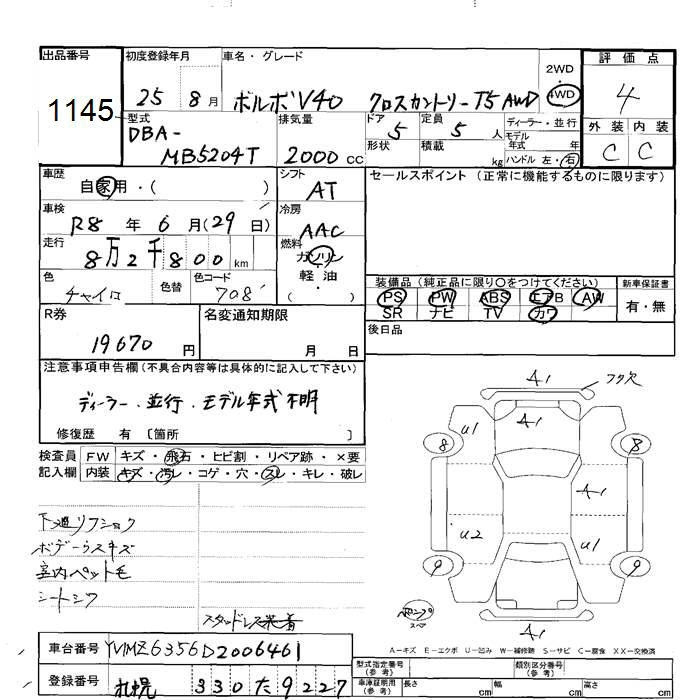 出品番号
1145
初度登録年月
25 8月
車名・グレード
ボルボV40 クロスカントリーT5 AWD
2WD
・
4WD
評価点
4
外装 内装
C C
型式
DBA-
MB5204T
排気量
2000 cc
ドア 5
形状
定員 5 人
積載 kg
ディーラー・並行
モデル
年式 年
ハンドル 左・右
車歴
自家用・( )
シフト
AT
セールスポイント (正常に機能するものに限ります)
車検
R8 年 6 月(29 日)
冷房
AAC
走行
8万2千800 km
燃料
ガソリン
・
軽油
( )
色
チャイロ
色替
色コード
708
装備品(純正品に限り○をつけてください)
PS PW ABS エアB AW
SR ナビ TV カワ
新車保証書
有・無
R券
19670 円
名変通知期限
月 日
後日品
注意事項申告欄(不具合内容等は具体的に記入して下さい)
ディーラー・並行・モデル年式不明
修復歴 有 〔箇所 〕
検査員
記入欄
FW キズ・飛石・ヒビ割・リペア跡・×要
内装 キズ・汚レ・コゲ・穴・スレ・キレ・破レ
下廻リフショク
ボデーウスキズ
室内ペット毛
シートシワ
スタッドレス装着
A1
フタ欠
A1
U1
8
8
A1
U2
U1
9
9
スペア
A1
A-キズ E-エクボ U-凹み W-補修跡 S-サビ C-腐食 XX-交換済
車台番号
YV1MZ6356D2006461
登録番号
札幌 330 た 9227
型式指定番号
(参考)
類別区分番号
(参考)
車庫証明用
(参考)
長さ cm
幅 cm
高さ cm